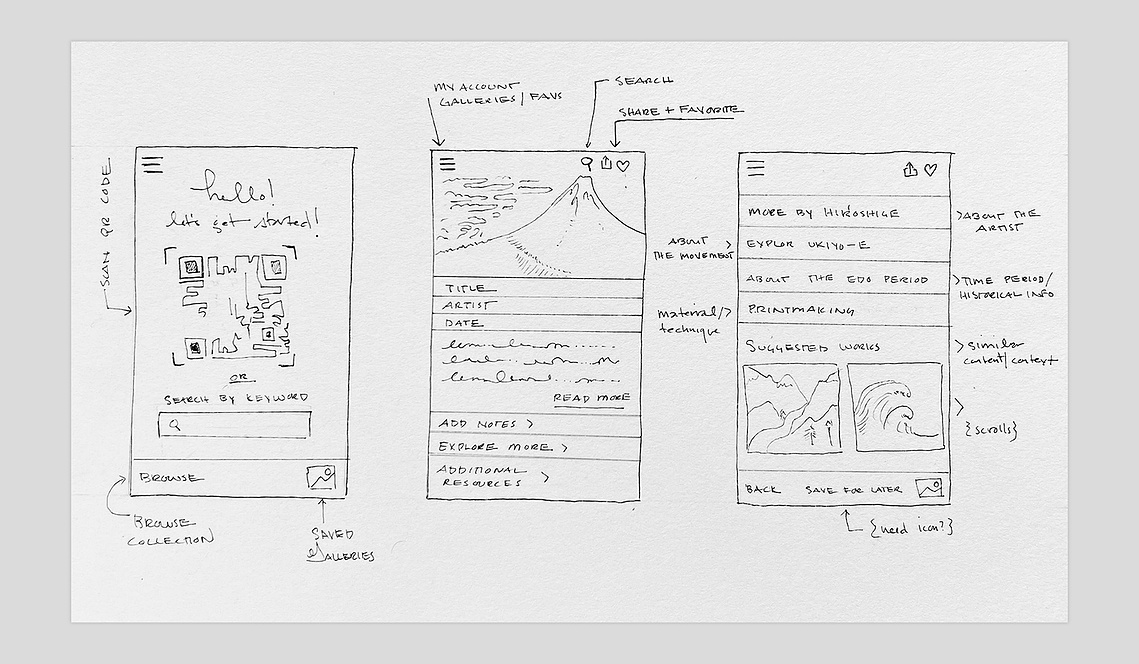 SCAN QR CODE
hello!
let's get started!
OR
SEARCH BY KEYWORD
BROWSE
BROWSE
COLLECTION
SAVED
GALLERIES
MY ACCOUNT
GALLERIES/FAVS
SEARCH
SHARE + FAVORITE
TITLE
ARTIST
DATE
READ MORE
ADD NOTES >
EXPLORE MORE >
ADDITIONAL
RESOURCES >
ABOUT >
THE MOVEMENT
material/ >
technique
MORE BY HIROSHIGE
EXPLOR UKIYO-E
ABOUT THE EDO PERIOD
PRINTMAKING
SUGGESTED WORKS
BACK SAVE FOR LATER
> ABOUT THE
ARTIST
> TIME PERIOD/
HISTORICAL INFO
> similar
content/context
> {scrolls}
{need icon?}